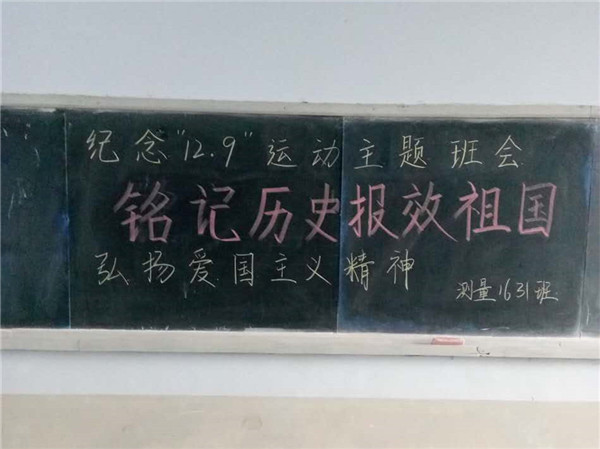 纪念"12.9"运动主题班会
铭记历史报效祖国
弘扬爱国主义精神
测量1631班